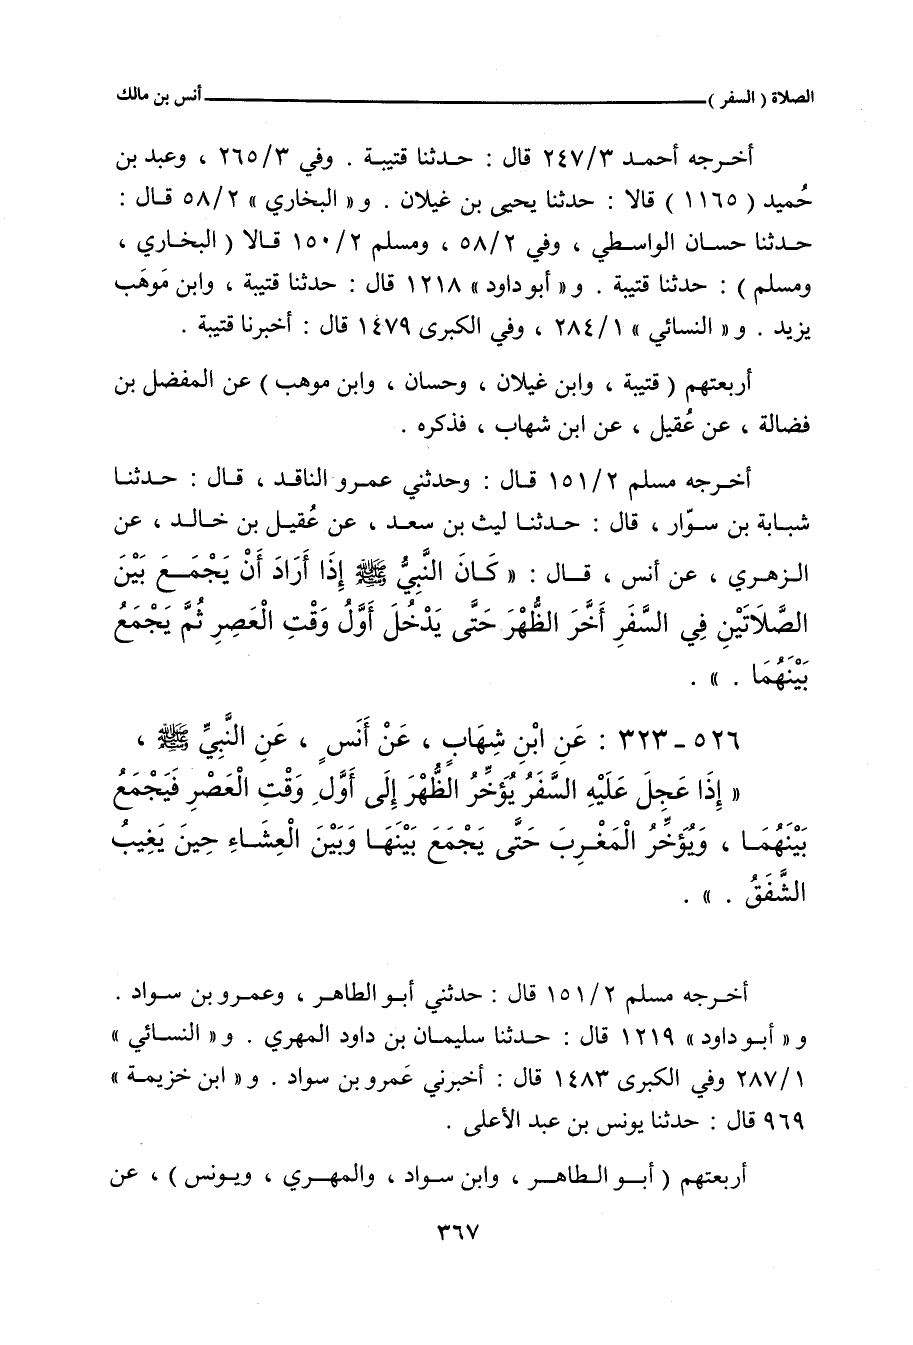 الصلاة ( السفر ) ــــــــــ أنس بن مالك
أخرجه أحمد ٢٤٧/٣ قال : حدثنا قتيبة . وفي ٢٦٥/٣ ، وعبد بن
حُميد ( ١١٦٥ ) قالا : حدثنا يحيى بن غيلان . و« البخاري » ٥٨/٢ قال :
حدثنا حسان الواسطي ، وفي ٥٨/٢ ، ومسلم ١٥٠/٢ قالا ( البخاري ،
ومسلم ) : حدثنا قتيبة . و« أبو داود » ١٢١٨ قال : حدثنا قتيبة ، وابن مَوهَب
يزيد . و« النسائي » ٢٨٤/١ ، وفي الكبرى ١٤٧٩ قال : أخبرنا قتيبة .
أربعتهم ( قتيبة ، وابن غيلان ، وحسان ، وابن موهب ) عن المفضل بن
فضالة ، عن عُقيل ، عن ابن شهاب ، فذكره .
أخرجه مسلم ١٥١/٢ قال : وحدثني عمرو الناقد ، قال : حدثنا
شبابة بن سوّار ، قال : حدثنا ليث بن سعد ، عن عُقيل بن خالد ، عن
الزهري ، عن أنس ، قال : « كَانَ النَّبِيُّ ﷺ إِذَا أَرَادَ أَنْ يَجْمَعَ بَيْنَ
الصَّلَاتَيْنِ فِي السَّفَرِ أَخَّرَ الظُّهْرَ حَتَّى يَدْخُلَ أَوَّلُ وَقْتِ الْعَصِرِ ثُمَّ يَجْمَعُ
بَيْنَهُمَا . » .
٥٢٦ - ٣٢٣ : عَنِ ابْنِ شِهَابٍ ، عَنْ أَنَسٍ ، عَنِ النَّبِيِّ ﷺ ،
« إِذَا عَجِلَ عَلَيْهِ السَّفَرُ يُؤَخِّرُ الظُّهْرَ إِلَى أَوَّلِ وَقْتِ الْعَصْرِ فَيَجْمَعُ
بَيْنَهُمَا ، وَيُؤَخِّرُ الْمَغْرِبَ حَتَّى يَجْمَعَ بَيْنَهَا وَبَيْنَ الْعِشَاءِ حِينَ يَغِيبُ
الشَّفَقُ . » .
أخرجه مسلم ١٥١/٢ قال : حدثني أبو الطاهر ، وعمرو بن سواد .
و« أبو داود » ١٢١٩ قال : حدثنا سليمان بن داود المهري . و« النسائي »
٢٨٧/١ وفي الكبرى ١٤٨٣ قال : أخبرني عَمرو بن سواد . و« ابن خزيمة »
٩٦٩ قال : حدثنا يونس بن عبد الأعلى .
أربعتهم ( أبو الطاهر ، وابن سواد ، والمهري ، ويونس ) ، عن
٣٦٧